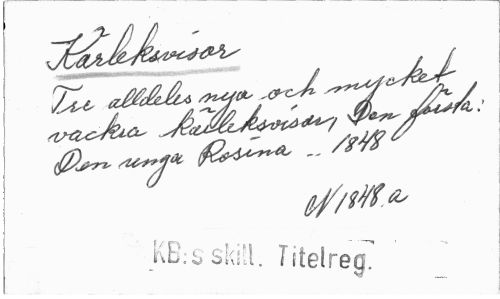 Kärleksvisor
Tre alldeles nya och mycket
vackra kärleksvisor, Den första:
Den unga Rosina .. 1848
N 1848.a
KB:s skill. Titelreg.